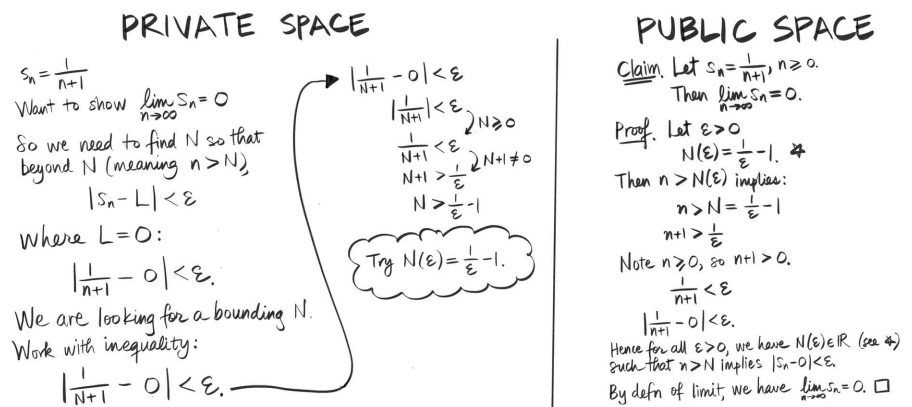 PRIVATE SPACE
s_n = 1/(n+1)
Want to show lim_{n→∞} s_n = 0
So we need to find N so that
beyond N (meaning n > N),
|s_n - L| < ε
where L = 0:
|1/(n+1) - 0| < ε.
We are looking for a bounding N.
Work with inequality:
|1/(N+1) - 0| < ε.
|1/(N+1) - 0| < ε
|1/(N+1)| < ε
N ≥ 0
1/(N+1) < ε
N+1 ≠ 0
N+1 > 1/ε
N > 1/ε - 1
Try N(ε) = 1/ε - 1.
PUBLIC SPACE
Claim. Let s_n = 1/(n+1), n ≥ 0.
Then lim_{n→∞} s_n = 0.
Proof. Let ε > 0
N(ε) = 1/ε - 1. *
Then n > N(ε) implies:
n > N = 1/ε - 1
n+1 > 1/ε
Note n ≥ 0, so n+1 > 0.
1/(n+1) < ε
|1/(n+1) - 0| < ε.
Hence for all ε > 0, we have N(ε) ∈ ℝ (see *)
such that n > N implies |s_n - 0| < ε.
By defn of limit, we have lim_{n→∞} s_n = 0. □